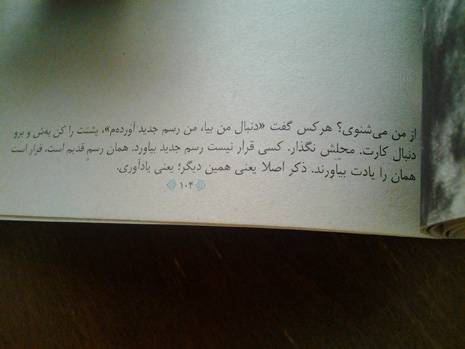 از من می‌شنوی؟ هرکس گفت «دنبال من بیا، من رسم جدید آورده‌م»، پشتت را کن بهش و برو
دنبال کارت. محلش نگذار. کسی قرار نیست رسم جدید بیاورد. همان رسمِ قدیم است، قرار است
همان را یادت بیاورند. ذکر اصلا یعنی همین دیگر؛ یعنی یادآوری.
۱۰۴